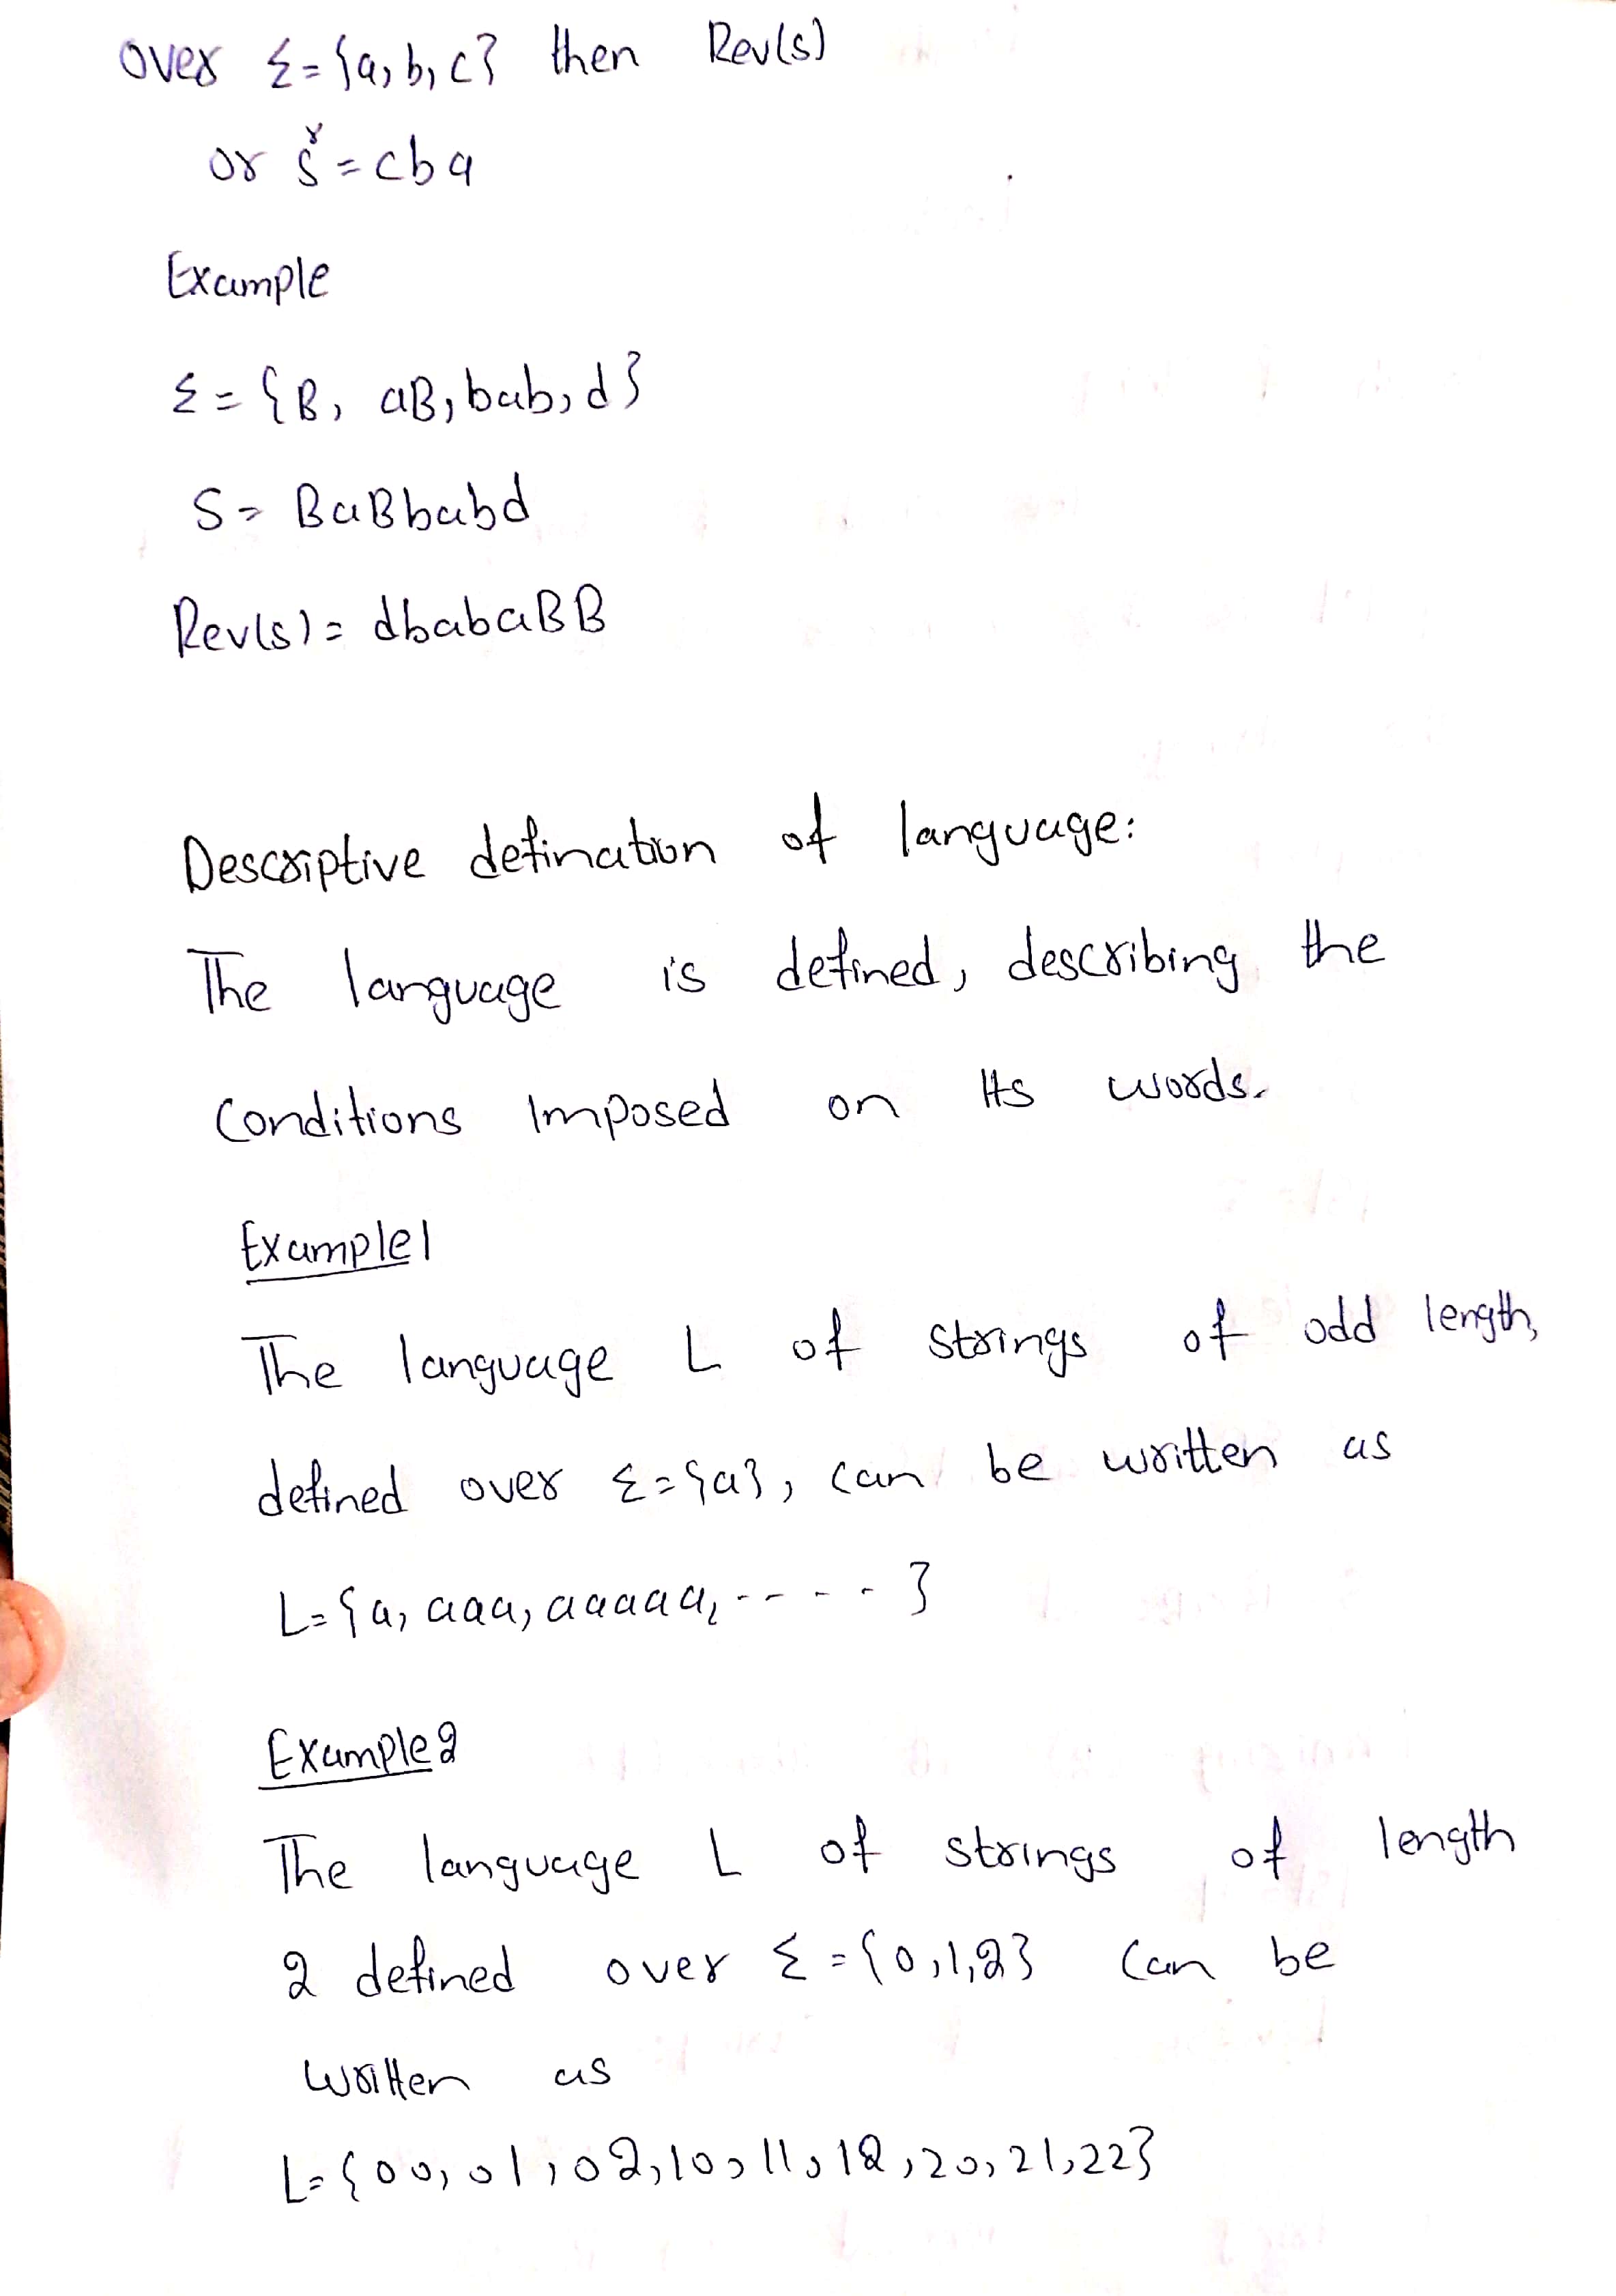 over Σ={a,b,c} then Rev(s)
or sʳ=cba
Example
Σ={B, aB, bab, d}
S= BaBbabd
Rev(s)= dbabaBB
Descriptive defination of language:
The language is defined, describing the
Conditions Imposed on Its words.
Example1
The language L of strings of odd length,
defined over Σ={a}, can be written as
L={a, aaa, aaaaa, -----}
Example2
The language L of strings of length
2 defined over Σ={0,1,2} can be
written as
L={00,01,02,10,11,12,20,21,22}